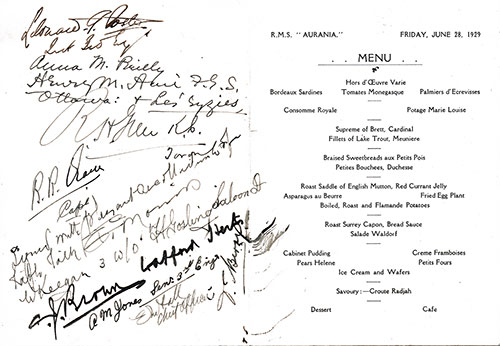 Anna M. Reilly
Henry M. Ami F.G.S.
Ottawa: & Les Eyzies
R.R.
W Keegan 3 W/O
J. Brown Watford Herts
A M Jones Senr 3rd Engr
Chief Officer
R.M.S. "AURANIA."
FRIDAY, JUNE 28, 1929
MENU
Hors d'Œuvre Varie
Bordeaux Sardines Tomates Monegasque Palmiers d'Ecrevisses
Consomme Royale Potage Marie Louise
Supreme of Brett, Cardinal
Fillets of Lake Trout, Meuniere
Braised Sweetbreads aux Petits Pois
Petites Bouchees, Duchesse
Roast Saddle of English Mutton, Red Currant Jelly
Asparagus au Beurre Fried Egg Plant
Boiled, Roast and Flamande Potatoes
Roast Surrey Capon, Bread Sauce
Salade Waldorf
Cabinet Pudding Creme Framboises
Pears Helene Petits Fours
Ice Cream and Wafers
Savoury:—Croute Radjah
Dessert Cafe